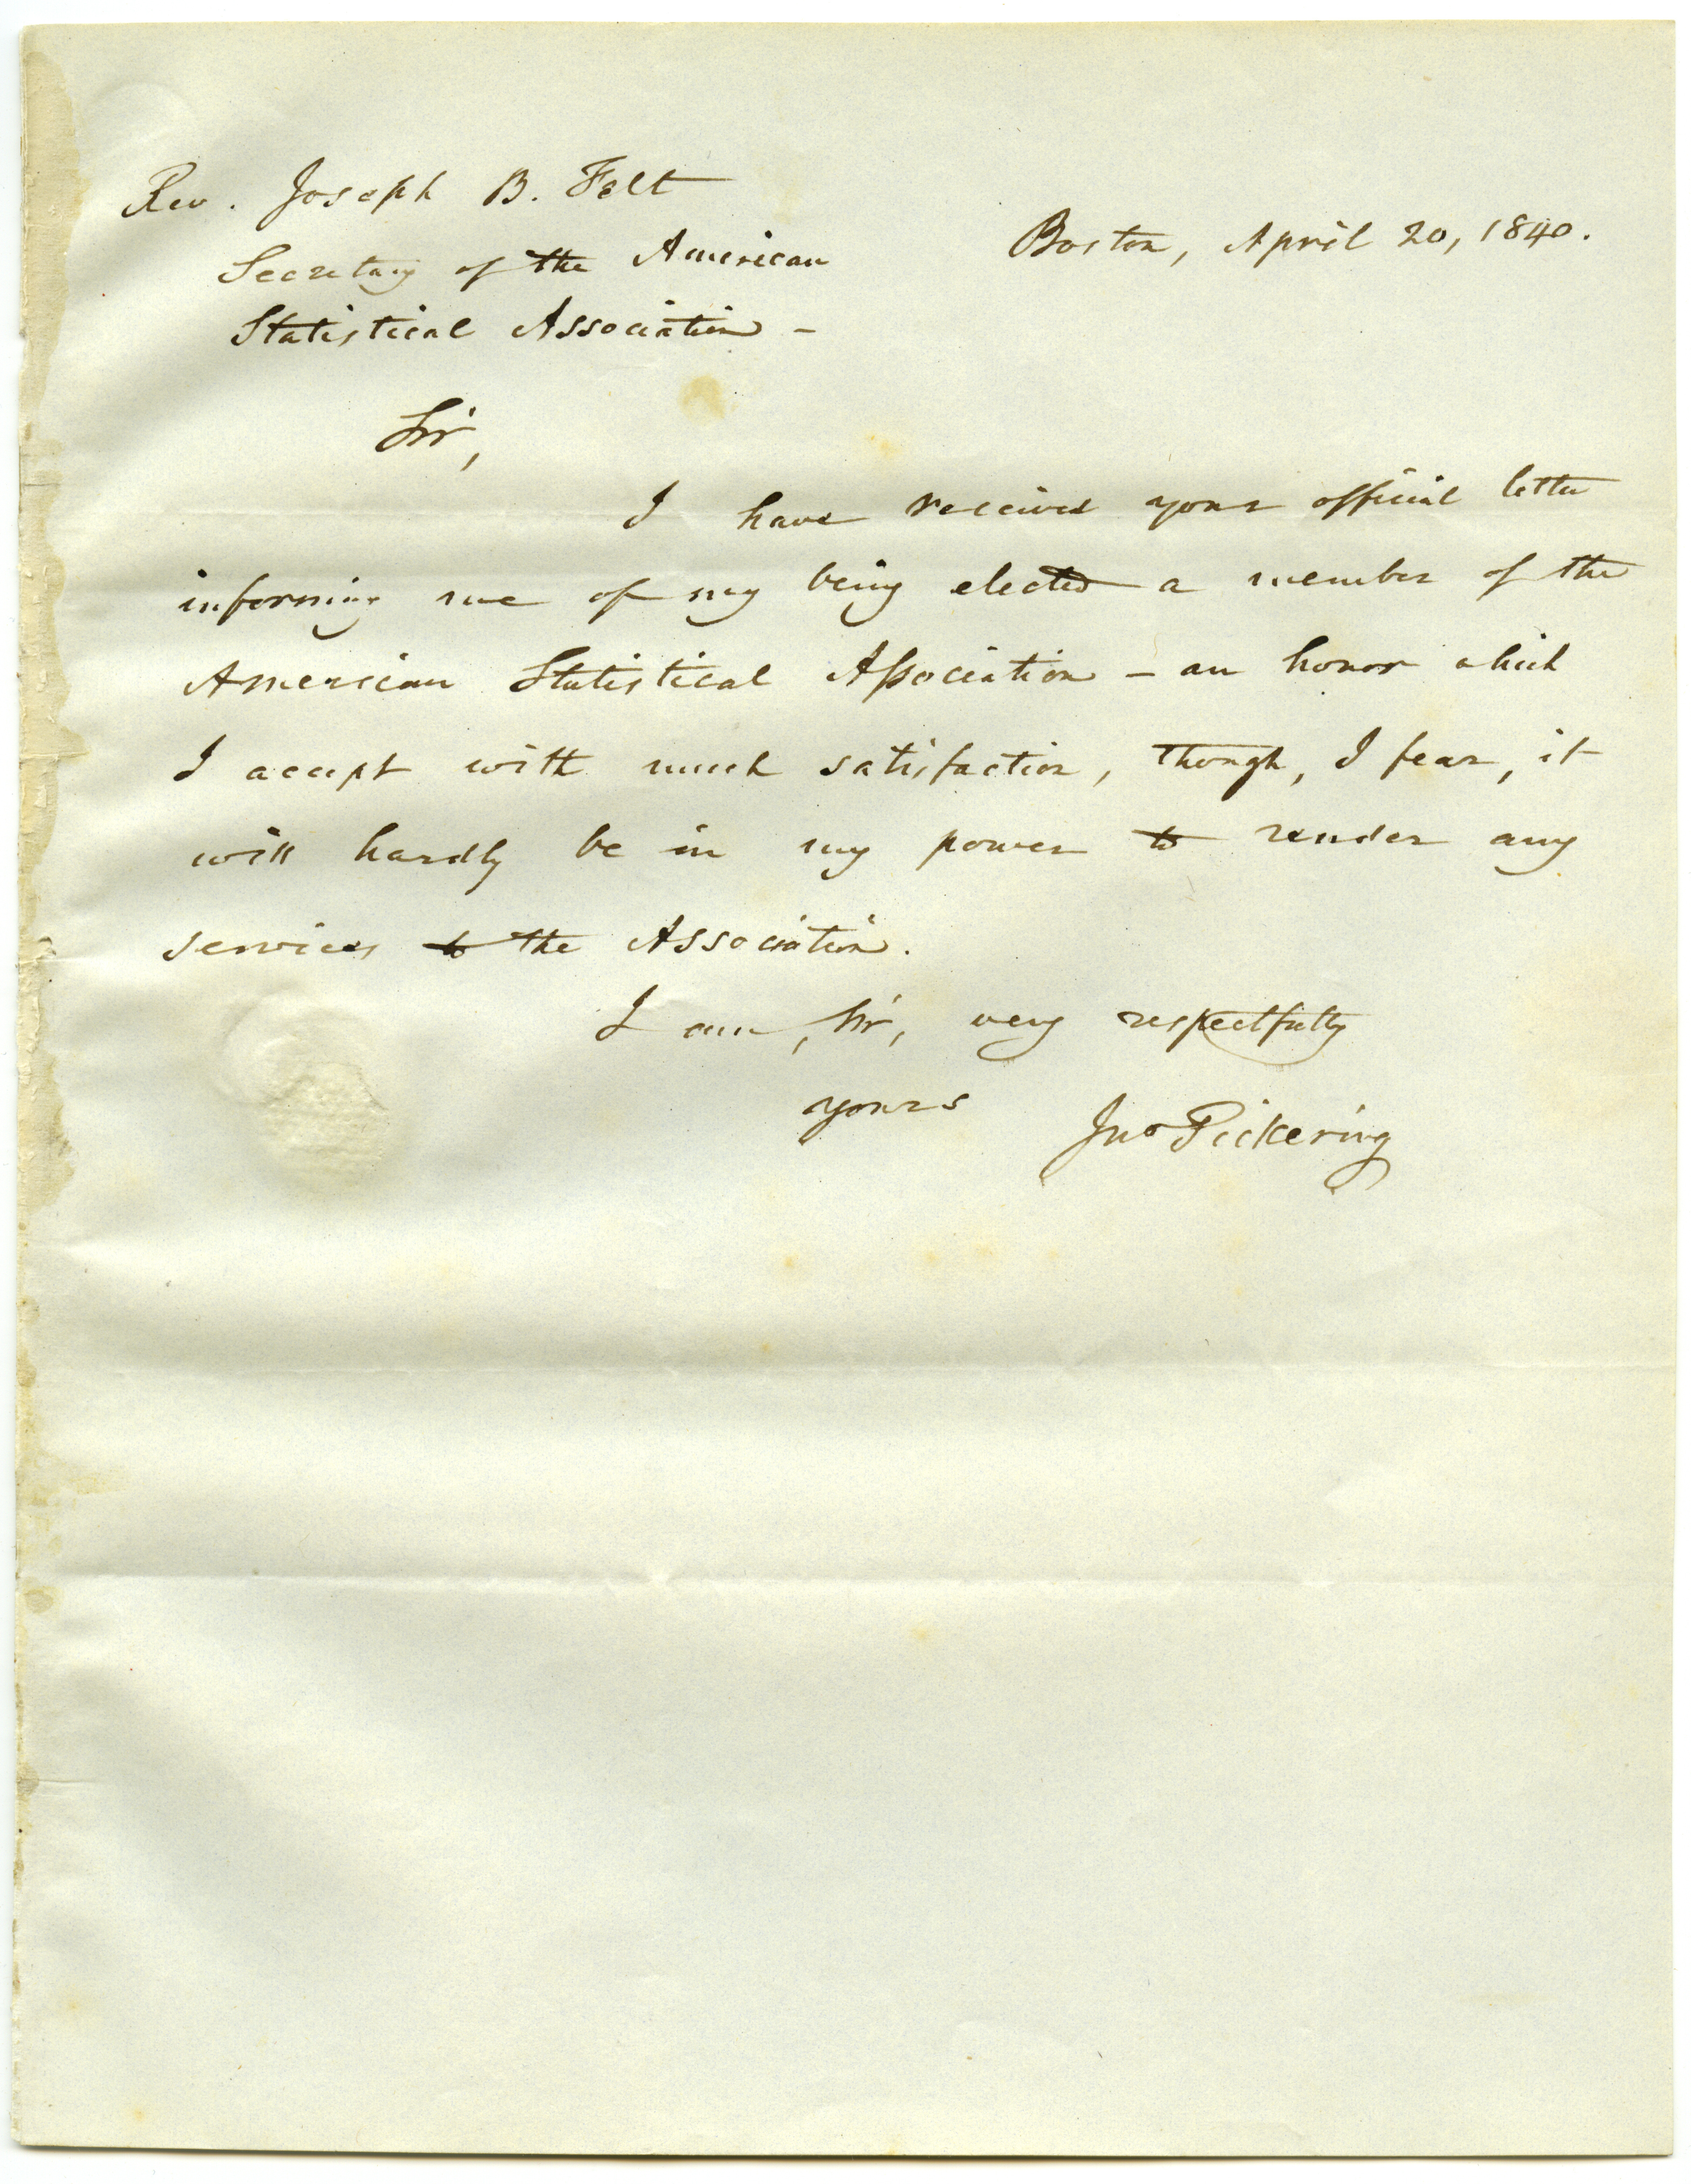 Rev. Joseph B. Felt
Boston, April 20, 1840.
Secretary of the American
Statistical Association –
Sir,
I have received your official letter
informing me of my being elected a member of the
American Statistical Aſsociation – an honor which
I accept with much satisfaction, though, I fear, it
will hardly be in my power to render any
services to the Association.
I am, Sir, very respectfully
yours Jno Pickering